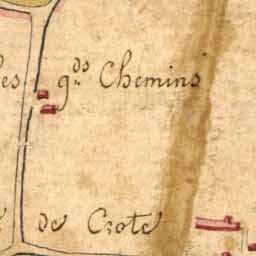 les gds Chemins
de Crote